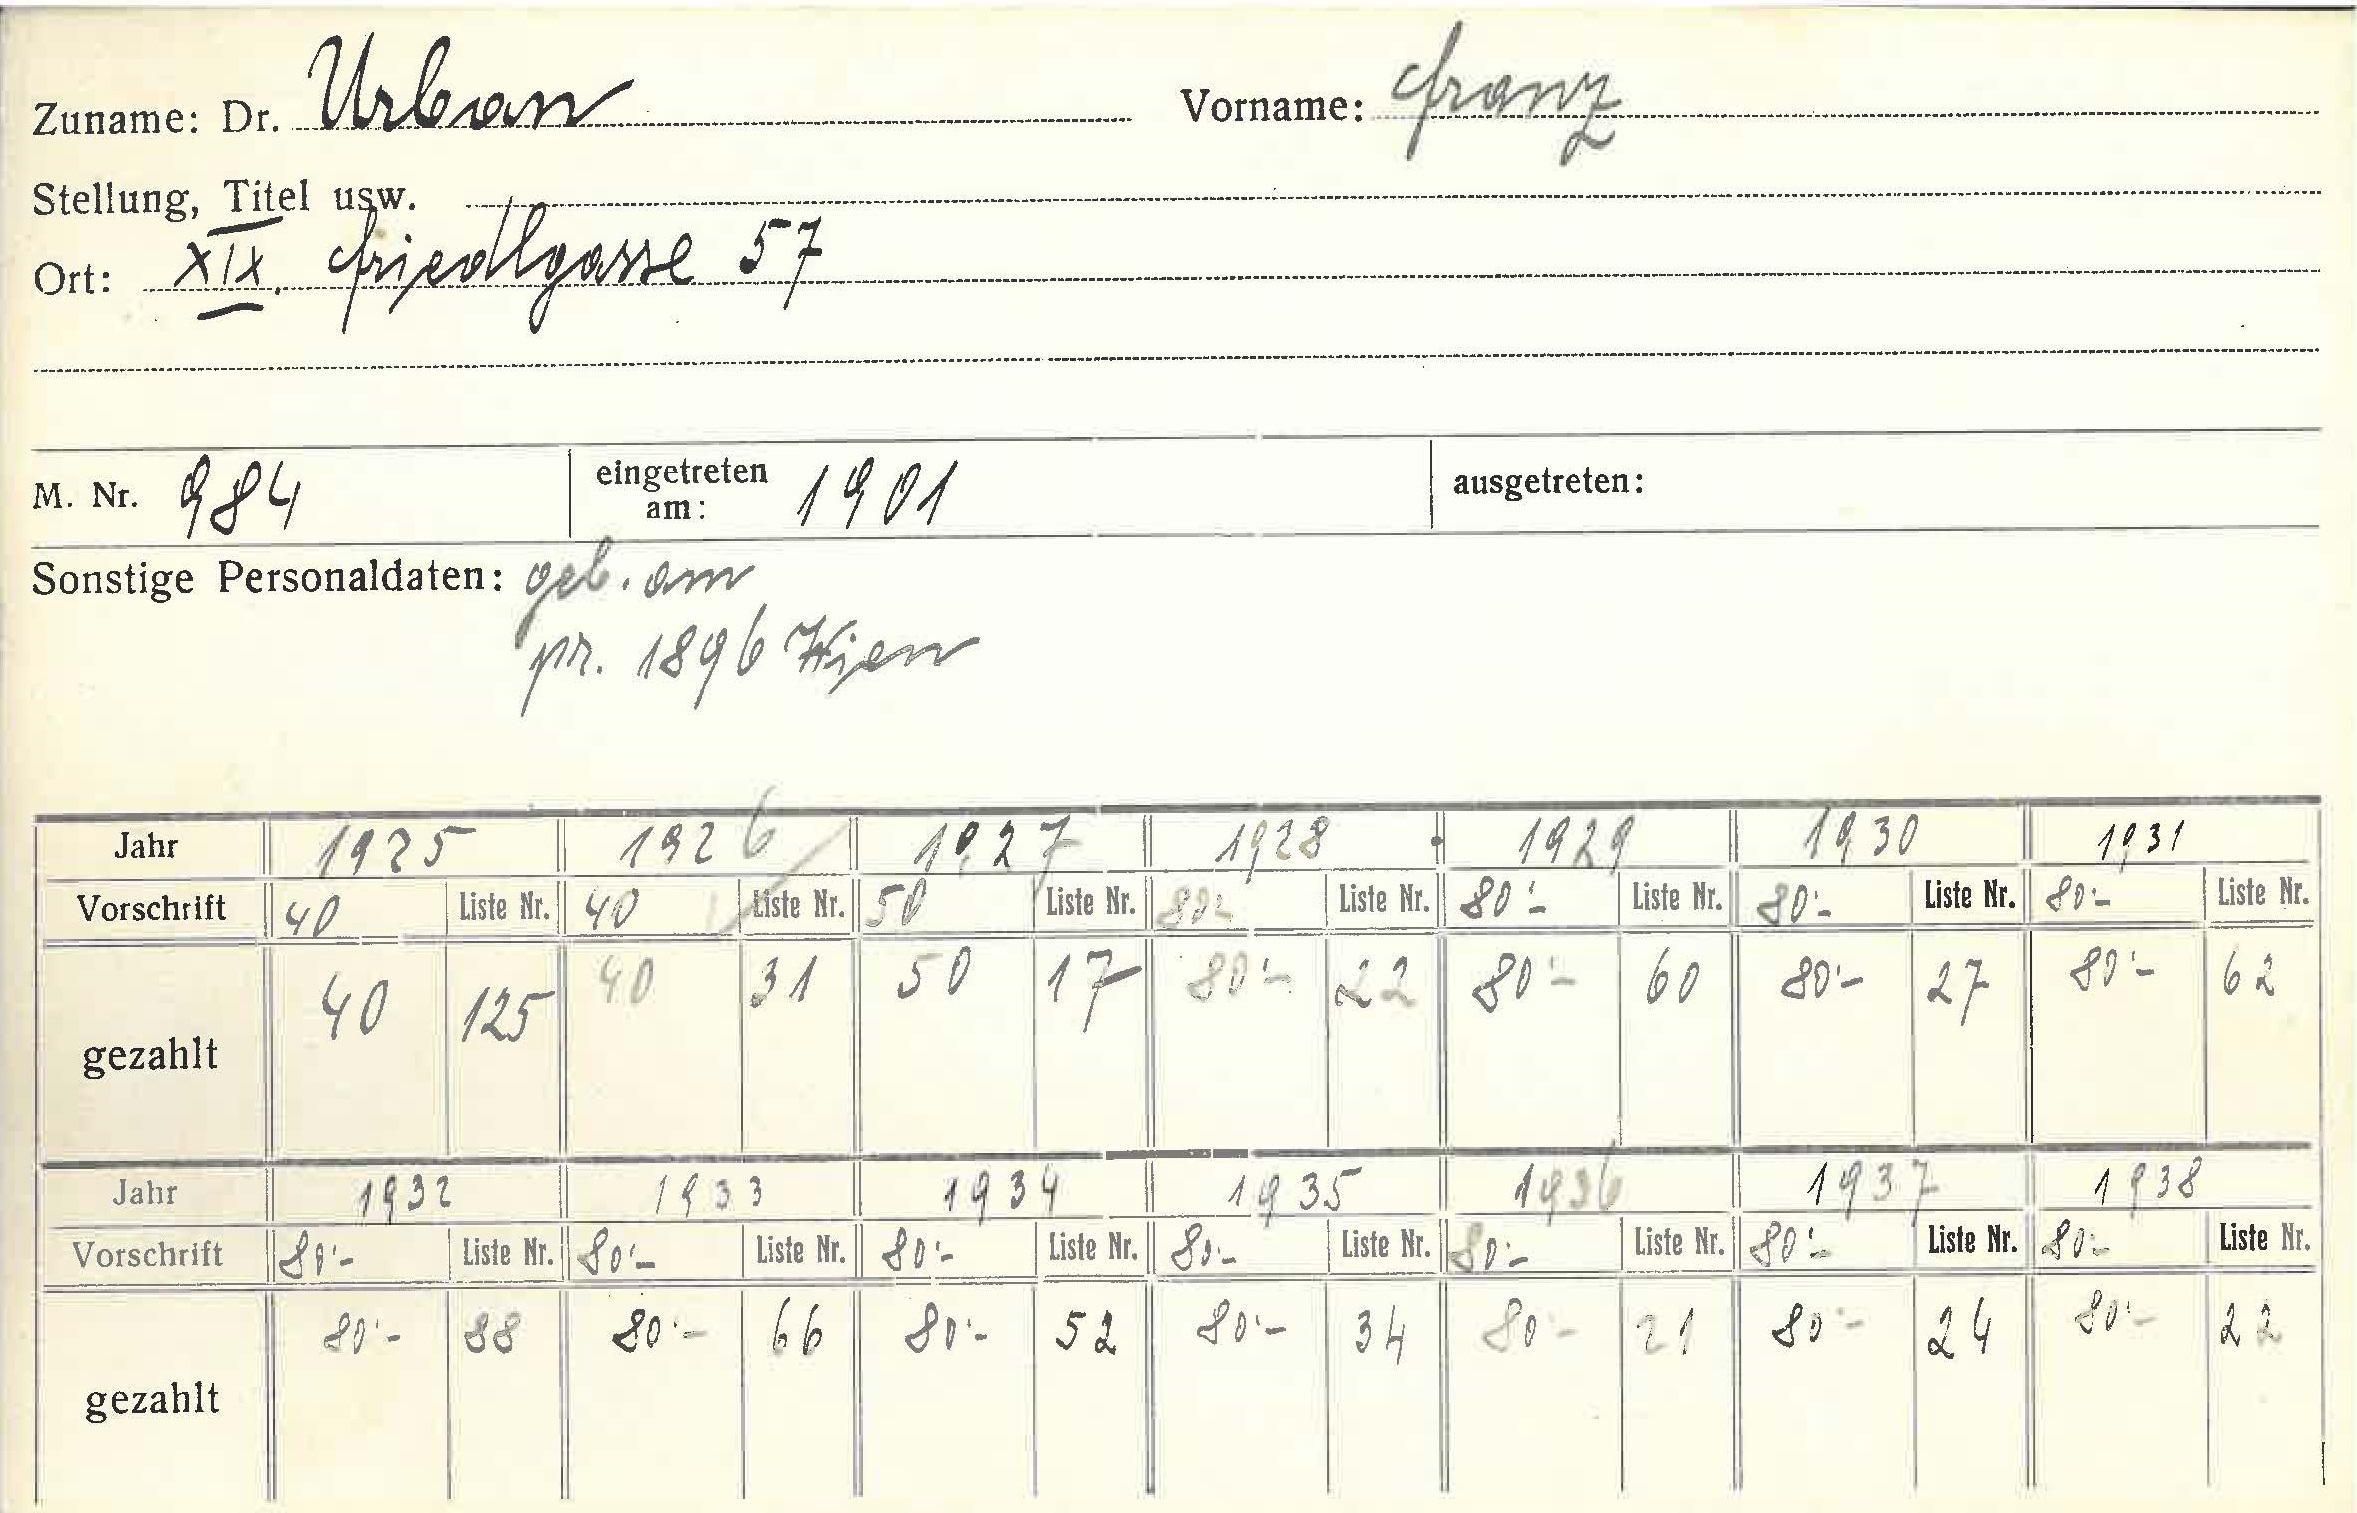 Zuname: Dr. Urban Vorname: Franz
Stellung, Titel usw.
Ort: XIX. Friedlgasse 57
M. Nr. 984 eingetreten am: 1901 ausgetreten:
Sonstige Personaldaten: geb. am
pr. 1896 Wien
Jahr 1925 1926 1927 1928 1929 1930 1931
Vorschrift 40 Liste Nr. 40 Liste Nr. 50 Liste Nr. 80'- Liste Nr. 80'- Liste Nr. 80'- Liste Nr. 80'- Liste Nr.
gezahlt 40 125 40 31 50 17 80'- 22 80'- 60 80'- 27 80'- 62
Jahr 1932 1933 1934 1935 1936 1937 1938
Vorschrift 80'- Liste Nr. 80'- Liste Nr. 80'- Liste Nr. 80'- Liste Nr. 80'- Liste Nr. 80'- Liste Nr. 80'- Liste Nr.
gezahlt 80'- 88 80'- 66 80'- 52 80'- 34 80'- 21 80'- 24 80'- 22